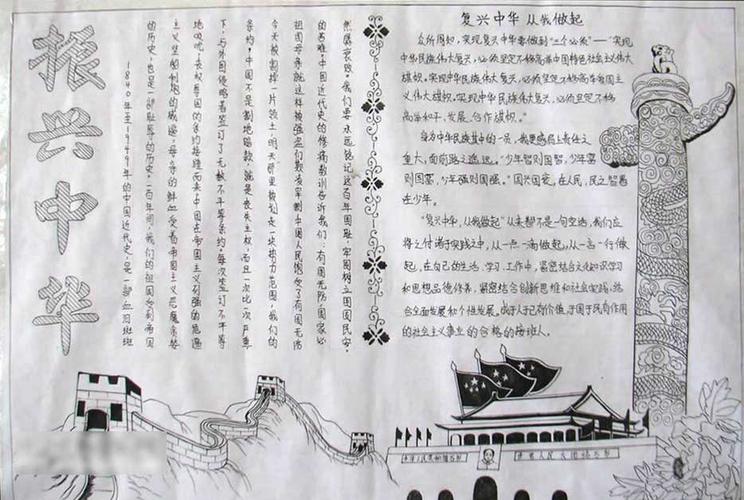 振兴中华
1840年至1949年的中国近代史,是一部血泪斑斑
的历史,也是一部耻辱的历史。一百年间,我们的祖国受到帝国
主义坚船利炮的威逼,母亲的鲜血受着帝国主义恶魔
地吸吮,丧权辱国的条约接踵而来中国在帝国主义列强的危逼
下,与外国侵略者签订了无数不平等条约,每次签订不平等
条约,中国不是割地赔款,就是丧失主权,而且一次比一次严重
今天被割掉一片领土,明天那里被划走一块势力范围,我们的
祖国母亲就这样被强盗们欺凌宰割中国人民饱受了有国无防
的苦难中国近代史的惨痛教训告诉我们:有国无防国家必
然衰败。我们要永远铭记这百年国耻,牢固树立国固民安。
复兴中华 从我做起
众所周知,实现复兴中华要做到“三个必须”——“实现
中华民族伟大复兴,必须坚定不移高举中国特色社会主义伟大
旗帜,实现中华民族伟大复兴,必须坚定不移高举爱国主
义伟大旗帜,实现中华民族伟大复兴,必须坚定不移
高举和平、发展、合作旗帜。”
身为中华民族其中的一员,我更感肩上责任之
重大,面前路之遥远。“少年智则国智,少年富
则国富,少年强则国强。”国兴国衰,在人民,民之智愚
在少年。
“复兴中华,从我做起”从来都不是一句空话,我们应
将之付诸于实践之中,从一点一滴做起,从一言一行做
起,在自己的生活、学习、工作中,紧紧结合文化知识学习
和思想品德修养,紧紧结合创新思维和社会实践,结
合全面发展和个性发展。做于人于己有价值,于国于民有作用
的社会主义事业的合格的接班人。
中华人民共和国万岁
世界人民大团结万岁